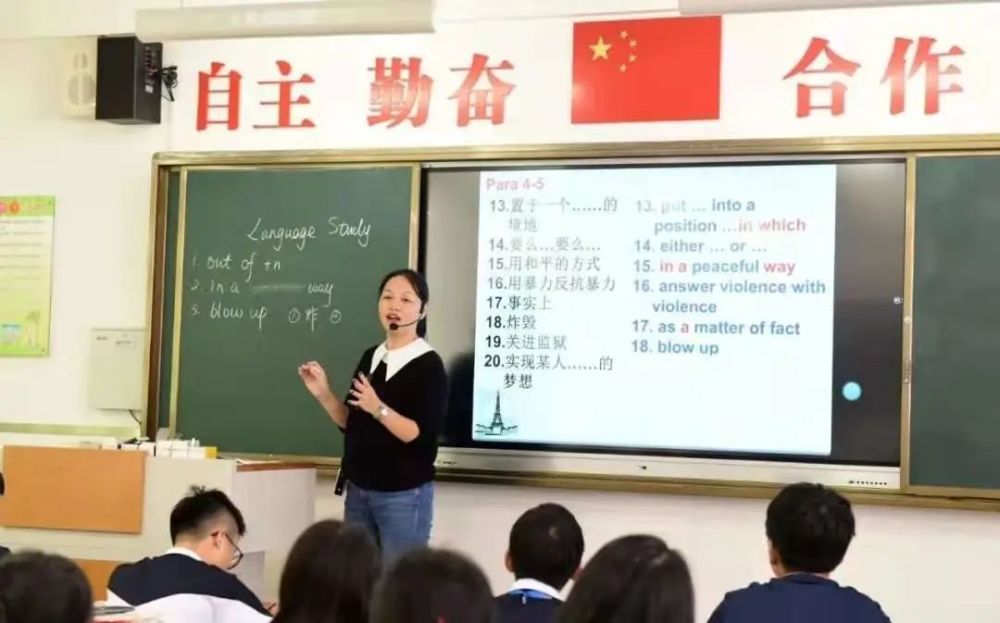 自主 勤奋 合作
Language Study
1. out of +n
2. in a ——— way
3. blow up ①炸 ②
Para 4-5
13.置于一个……的
境地
14.要么…要么…
15.用和平的方式
16.用暴力反抗暴力
17.事实上
18.炸毁
19.关进监狱
20.实现某人……的
梦想
13. put … into a
position …in which
14. either … or …
15. in a peaceful way
16. answer violence with
violence
17. as a matter of fact
18. blow up